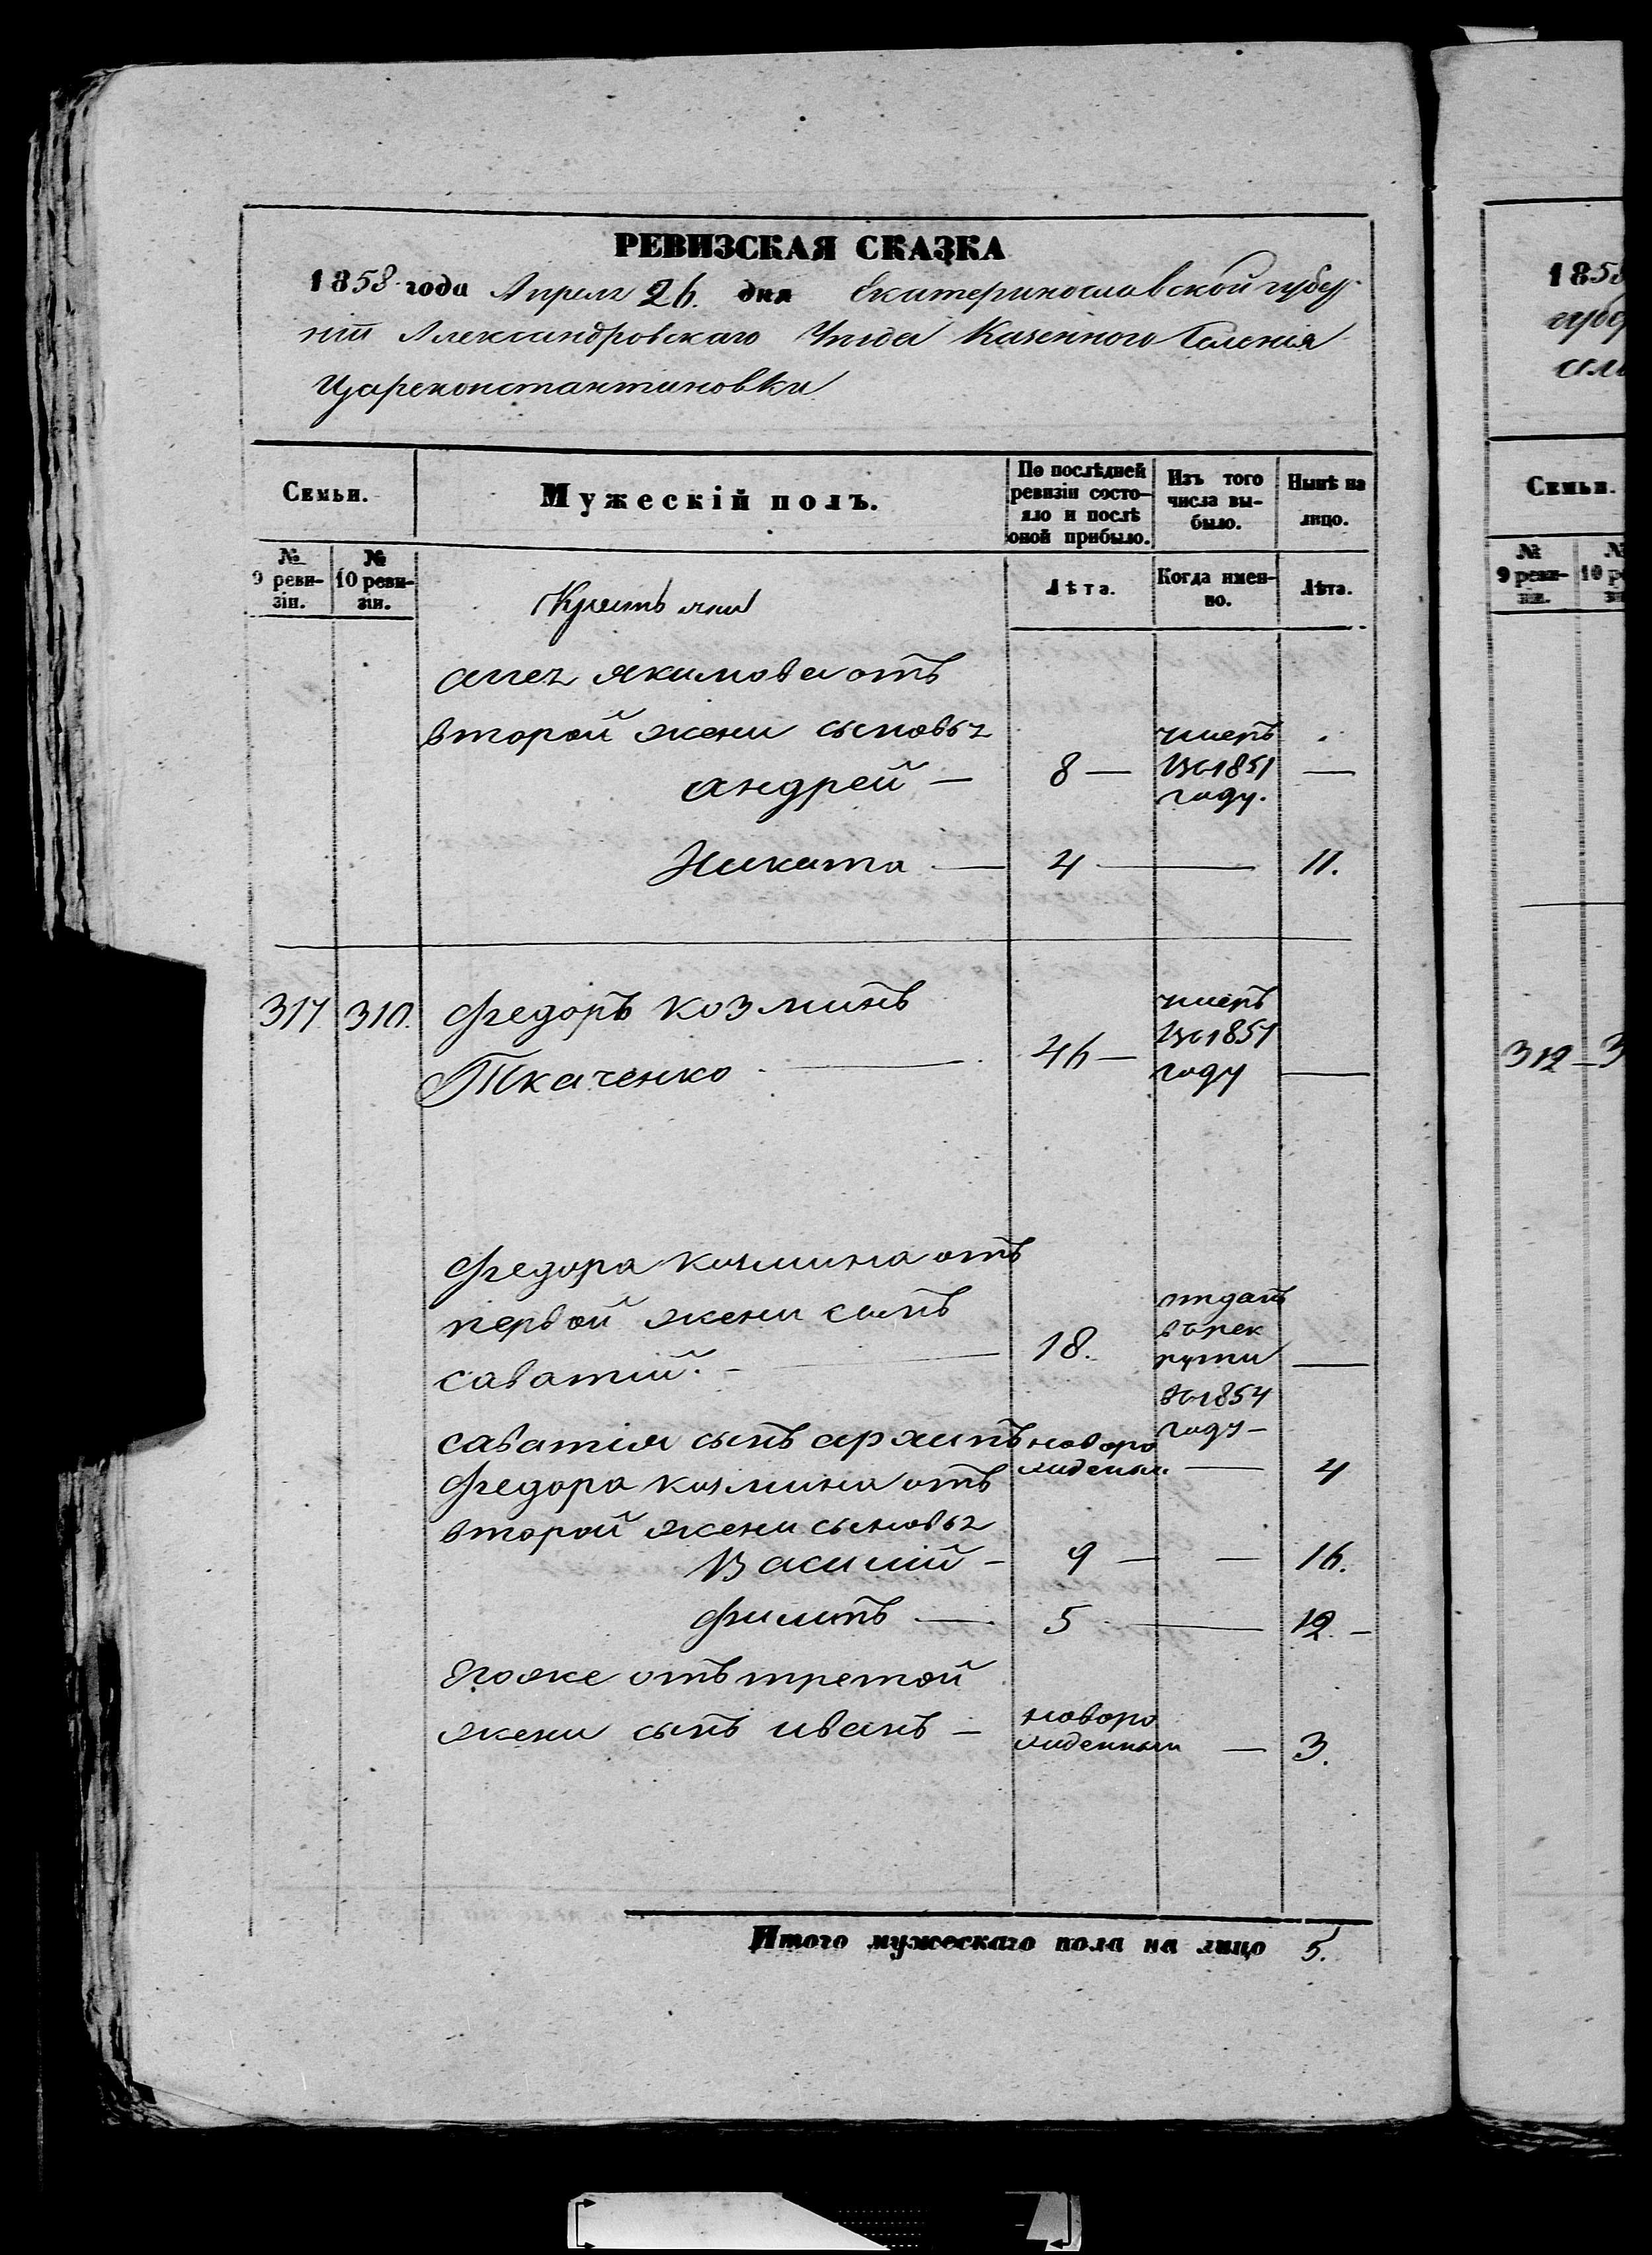 РЕВИЗСКАЯ СКАЗКА
1858 года Апреля 26. дня Екатеринославской губер
ніи Александровскаго Уезда Казенного Селенія
Цареконстантиновки
Семьи.
Мужескій полъ.
По послѣдней ревизіи состояло и послѣ оной прибыло.
Изъ того числа выбыло.
Нынѣ на лицо.
№ 9 ревизіи.
№ 10 ревизіи.
Крестьяни
Лѣта.
Когда именно.
Лѣта.
Якимова отъ
второй жени сыновья
андрей — 8 — умеръ во 1851 году. —
Никита — 4 — 11.
317 310. Федоръ козминъ
Ткаченко — 46 — умеръ во 1851 году —
Федора козмина отъ
первой жени сынъ
саватій. — 18. отданъ въ рек руты во 1854 году — —
саватія сынъ архипъ новоро жденый — 4
Федора козмина отъ
второй жени сыновья
Василій — 9 — — 16.
филипъ — 5 — 12. —
Егоже отъ третой
жени сынъ иванъ — новоро жденный — 3.
Итого мужескаго пола на лицо 5.
1858
Семьи.
№ 9 ревизіи.
312 —